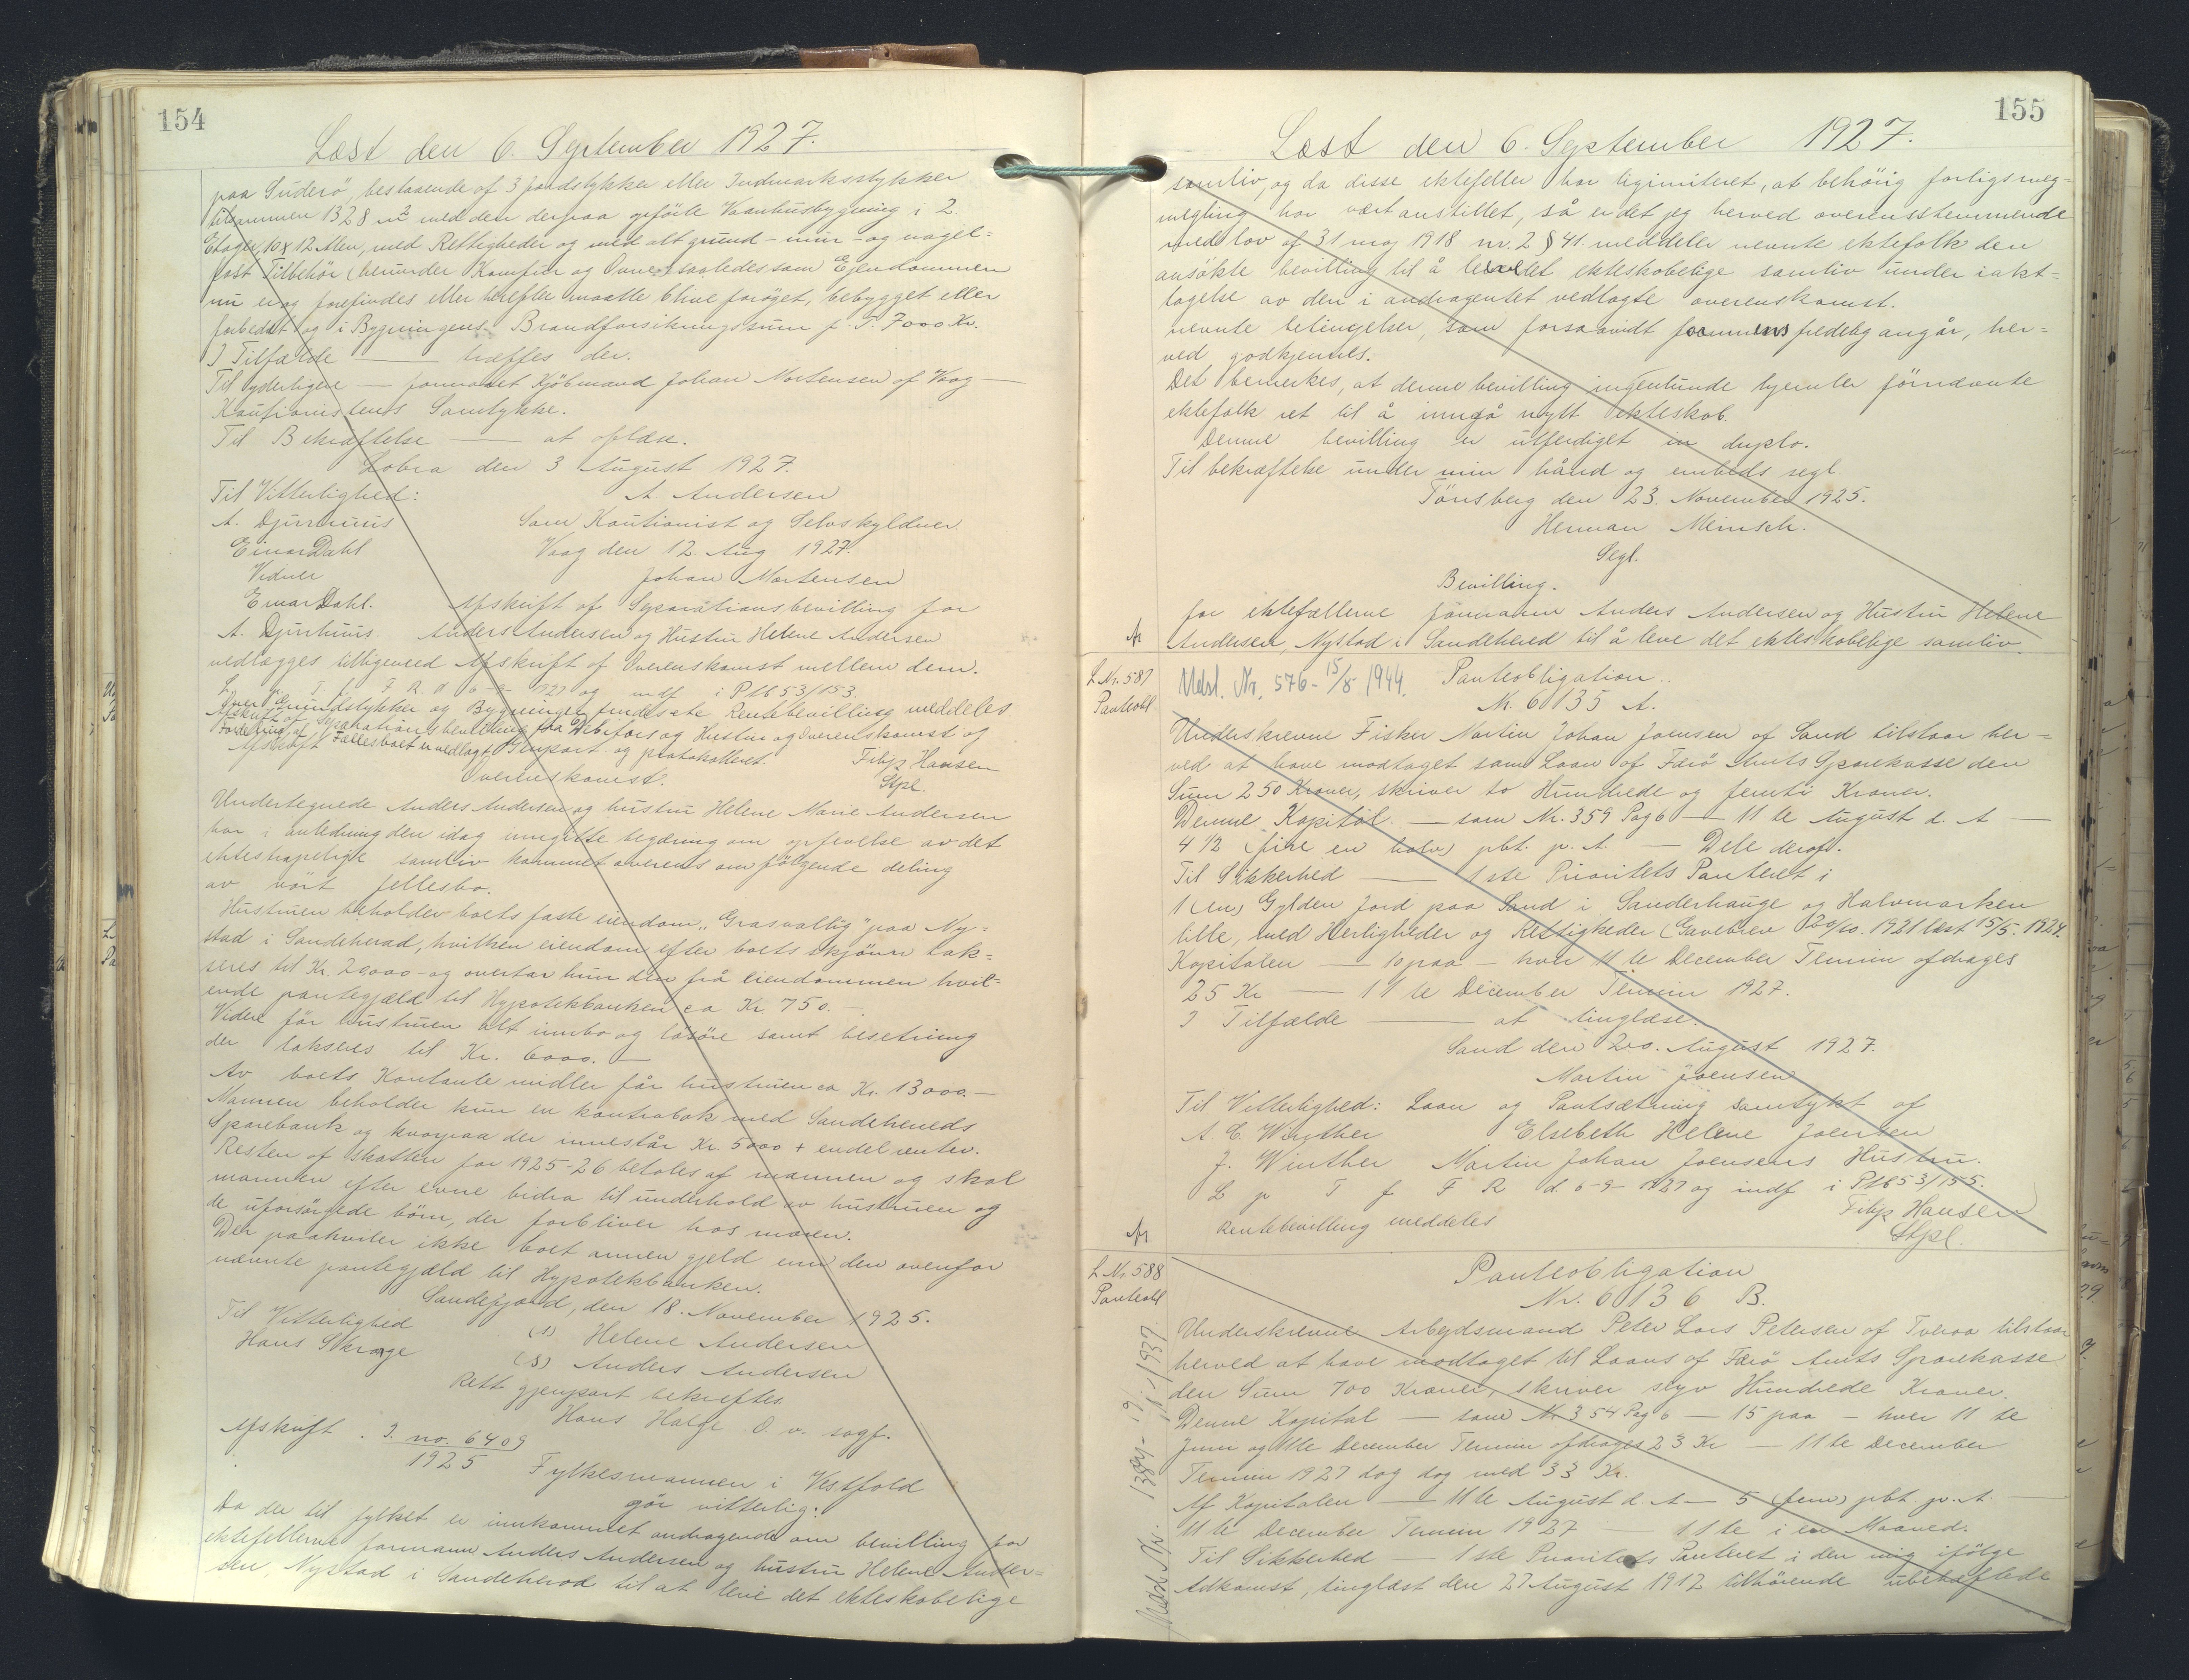 154
Læst den 6. September 1927.
paa Suderö, bestaaende af 3 Jordstykker eller Indmarksstykker
tilsammen 1328 m2 med den derpaa opförte Vaanhusbygning i 2
Etager, 10 x 12 Alen, med Rettigheder og med alt grund- mur- og nagel=
fast Tilbehör (herunder Komfur og Ovne) saaledes som Ejendommen
nu er og forefindes eller herefter maatte blive forøget, bebygget eller
forbedret og i Bygningens Brandforsikringssum p. T. 7000 Kr.
I Tilfælde — træffes der.
Til yderligere — formaaet Kjöbmand Johan Mortensen af Vaag —
Kautionistens Samtykke.
Til Bekræftelse — at oplæse.
Lobra den 3 August 1927.
Til Vitterlighed: A. Andersen
A. Djurhuus Som Kautionist og Selvskyldner.
Einar Dahl Vaag den 12. Aug 1927.
Vidner Johan Mortensen
Einar Dahl. Afskrift af Separationsbevilling for
A. Djurhuus. Anders Andersen og Hustru Helene Andersen
vedlægges tilligemed Afskrift af Overenskomst mellem dem.
L p T f F R d 6-9-1927 og indf i Ptb 53/153.
Over Grundstykker og Bygninger Rentebevilling meddeles
Afskrift af Separationsbevilling fra Debitors og Hustru og Overenskomst og
Fordeling af Fællesboet er vedlagt Genpart og protokolleret.
Afskrift Filip Hansen
Overenskomst. Stpl.
Undertegnede Anders Andersen og hustru Helene Marie Andersen
har i anledning den idag inngitte begæring om ophevelse av det
ekteskapelige samliv kommet overens om fölgende deling
av vårt fellesbo.
Hustruen beholder boets faste eiendom „Grasvallig" paa Ny=
stad i Sandeherad, hvilken eiendom efter boets skjönn tak=
seres til Kr. 29000 - og overtar hun den på eiendommen hvil=
ende pantegjæld til Hypotekbanken ca Kr 750. -
Videre får hustruen alt innbo og lösöre samt besetning
der takseres til Kr. 6000. —
Av boets Kontante midler får hustruen ca Kr. 13000.—
Mannen beholder kun en kontrabok med Sandeherreds
Sparebank og hvorpaa der innestår Kr. 5000 + endel renter.
Resten af skatten for 1925-26 betales af mannen og skal
mannen efter evne bidra til underhold av hustruen og
de uforsörgede börn, der forbliver hos moren.
Der paahviler ikke boet annen gjeld enn den ovenfor
nævnte pantegjæld til Hypotekbanken.
Sandefjord, den 18. November 1925.
Til Vitterlighed (S) Helene Andersen
Hans Skrage (S) Anders Andersen
Rett gjenpart bekreftes
Hans Halge O. r. sagf.
Afskrift. J. no. 6409
1925 Fylkesmannen i Vestfold
gör vitterlig:
Da der til fylket er innkommet andragende om bevilling for
ektefellerne formann Anders Andersen og hustru Helene Ander=
sen, Nystad i Sandeherad til at leve det ekteskabelige
155
Læst den 6. September 1927.
samliv, og da disse ektefeller har ligimiteret, at behörig forligs meg=
megling har vært anstillet, så er det jeg herved overensstemmende
med lov af 31 maj 1918 nr. 2 § 41. meddeler nevnte ektefolk den
ansökte bevilling til å leve det ekteskobelige samliv under iakt=
tagelse av den i andragentet vedlagte overenskomst.
nevnte betingelser, som forsaavidt angår, her=
ved godkjennes.
Det bemerkes, at denne bevilling ingenlunde hjemler förnævnte
ektefolk ret til å inngå nytt ekteskab.
Denne bevilling er utferdiget in duplo.
Til bekræftelse under min hånd og embeds segl.
Tönsberg den 23. November 1925.
Herman Meinich.
Segl.
Bevilling.
for ektefællerne formann Anders Andersen og Hustru Helene
Andersen, Nystad i Sandeherred til å leve det ekteskobelige samliv.
L Nr. 587 Udsl. Nr. 576 - 15/8 1944. Panteobligation.
Panteobl Nr. 6135 A.
Underskrevne Fisker Martin Johan Joensen af Sand tilstaar her=
ved at have modtaget som Laan af Færö Amts Sparekasse den
Sum 250 Kroner, skriver to Hundrede og femti Kroner.
Denne Kapital. — som Nr. 359 Pag 6 — 11 te August d. A —
4 1/2 (fire en halv) pbt. p. A. — Dele deraf.
Til Sikkerhed — 1 ste Prioritets Panteret i
1 (en) Gylden Jord paa Sand i Sanderhauge og Halvmarken
lille, med Herligheder og Rettigheder (Gavebrev 20/10. 1921 læst 15/5. 1924.
Kapitalen — 10 paa — hver 11 te December Termin afdrages
25 Kr — 11 te December Termin 1927.
I Tilfælde — at tinglæse.
Sand den 20. August 1927.
Martin Joensen
Til Vitterlighed: Laan og Pantsætning samtykt af
A. C. Winther Elsebeth Helene Joensen
J. Winther Martin Johan Joensens Hustru.
L p T f F R d. 6-9-1927 og indf i Ptb 53/155.
Rentebevilling meddeles Filip Hansen
Stpl.
L Nr 588 Panteobligation
Panteobl Nr. 6136 B.
Underskrevne Arbejdsmand Peter Lars Petersen af Tveraa tilstaar
herved at have modtaget til Laans af Færö Amts Sparekasse
den Sum 700 Kroner, skriver syv Hundrede Kroner.
Denne Kapital — som Nr 354 Pag 6 — 15 paa — hver 11 te
Juni og 11te December Termin afdrages 23 Kr — 11 te December
Termin 1927 dog dog med 33 Kr.
Af Kapitalen — 11 te August d. A — 5 (fem) pbt. p. A. —
11 te December Termin 1927 — 11 te i en Maaned.
Til Sikkerhed — 1 ste Prioritets Panteret i den mig ifölge
Adkomst, tinglæst den 27 August 1912 tilhörende ubehæftede